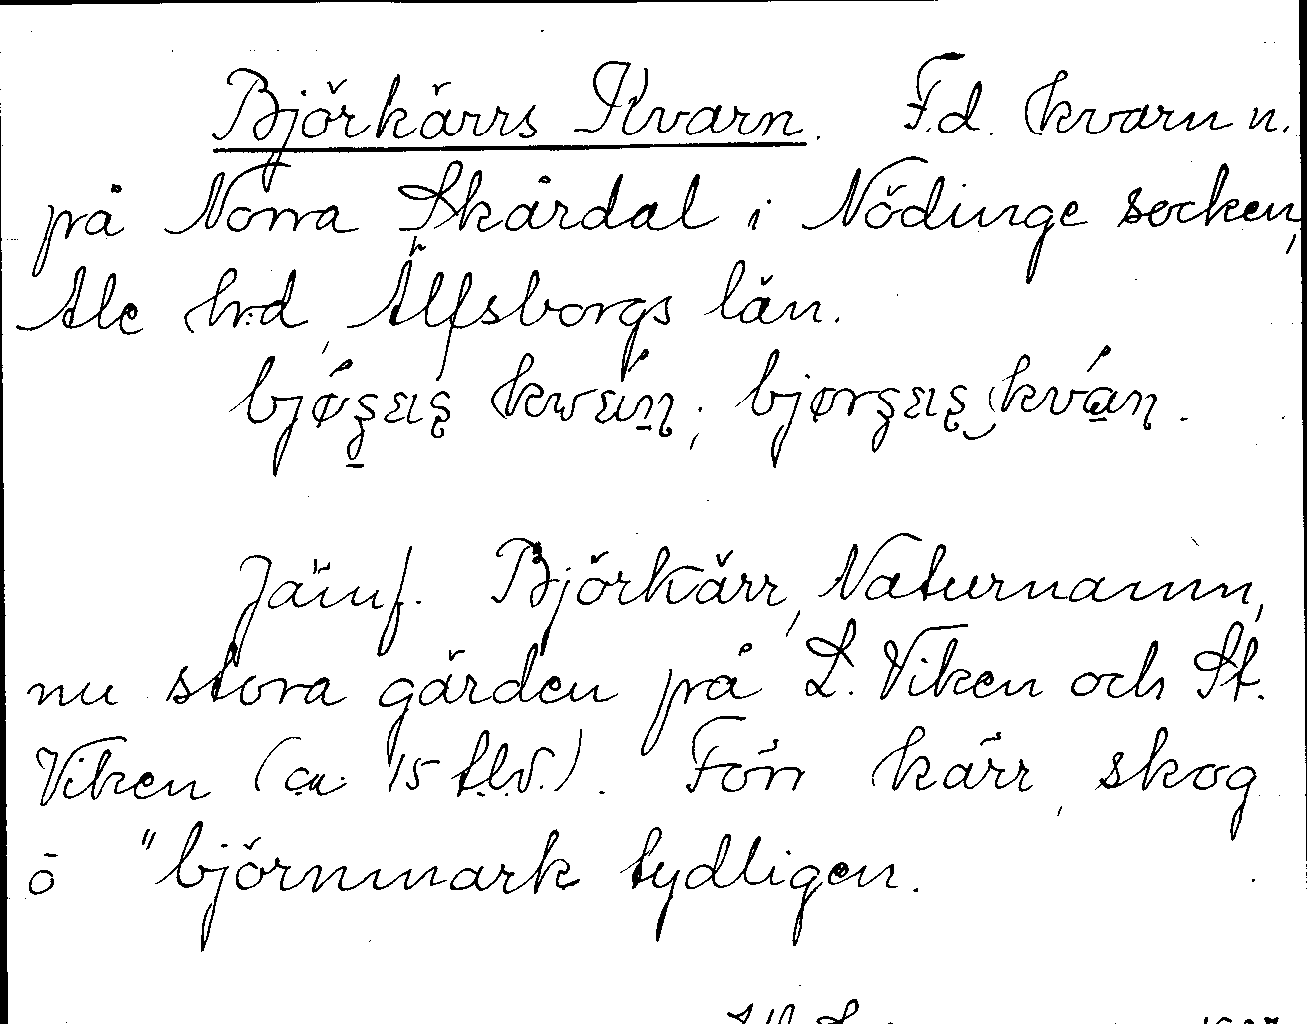 Björkärrs Kvarn. F.d. kvarn n.
på Norra Skårdal i Nödinge socken,
Ale hrd, Älfsborgs län.
Jämf. Björkärr, Naturnamn,
nu stora gården på L. Viken och St.
Viken (ca. 15 t.l.v.). Förr kärr, skog
o "björnmark tydligen.